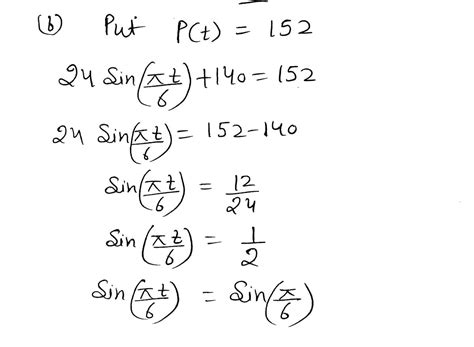 (b) Put P(t) = 152
24 Sin(πt/6) + 140 = 152
24 Sin(πt/6) = 152 - 140
Sin(πt/6) = 12/24
Sin(πt/6) = 1/2
Sin(πt/6) = Sin(π/6)